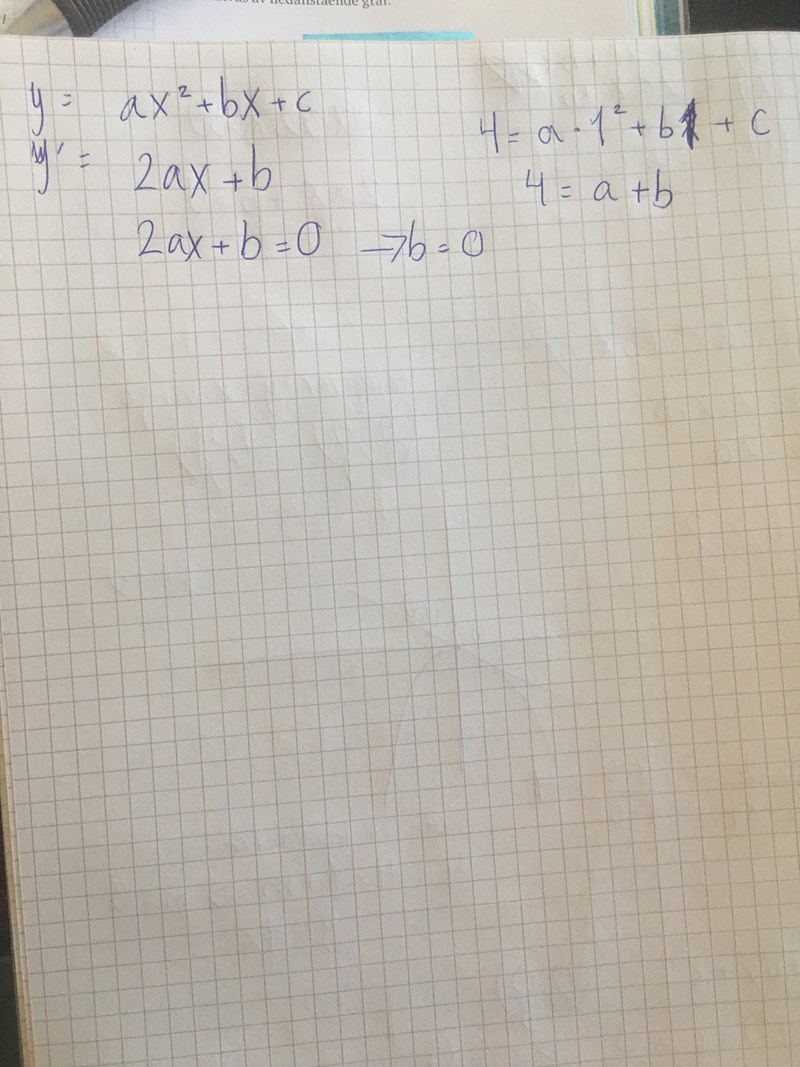 av nedanstående graf.
y = ax² + bx + c
y' = 2ax + b
2ax + b = 0 → b = 0
4 = a · 1² + b1 + c
4 = a + b